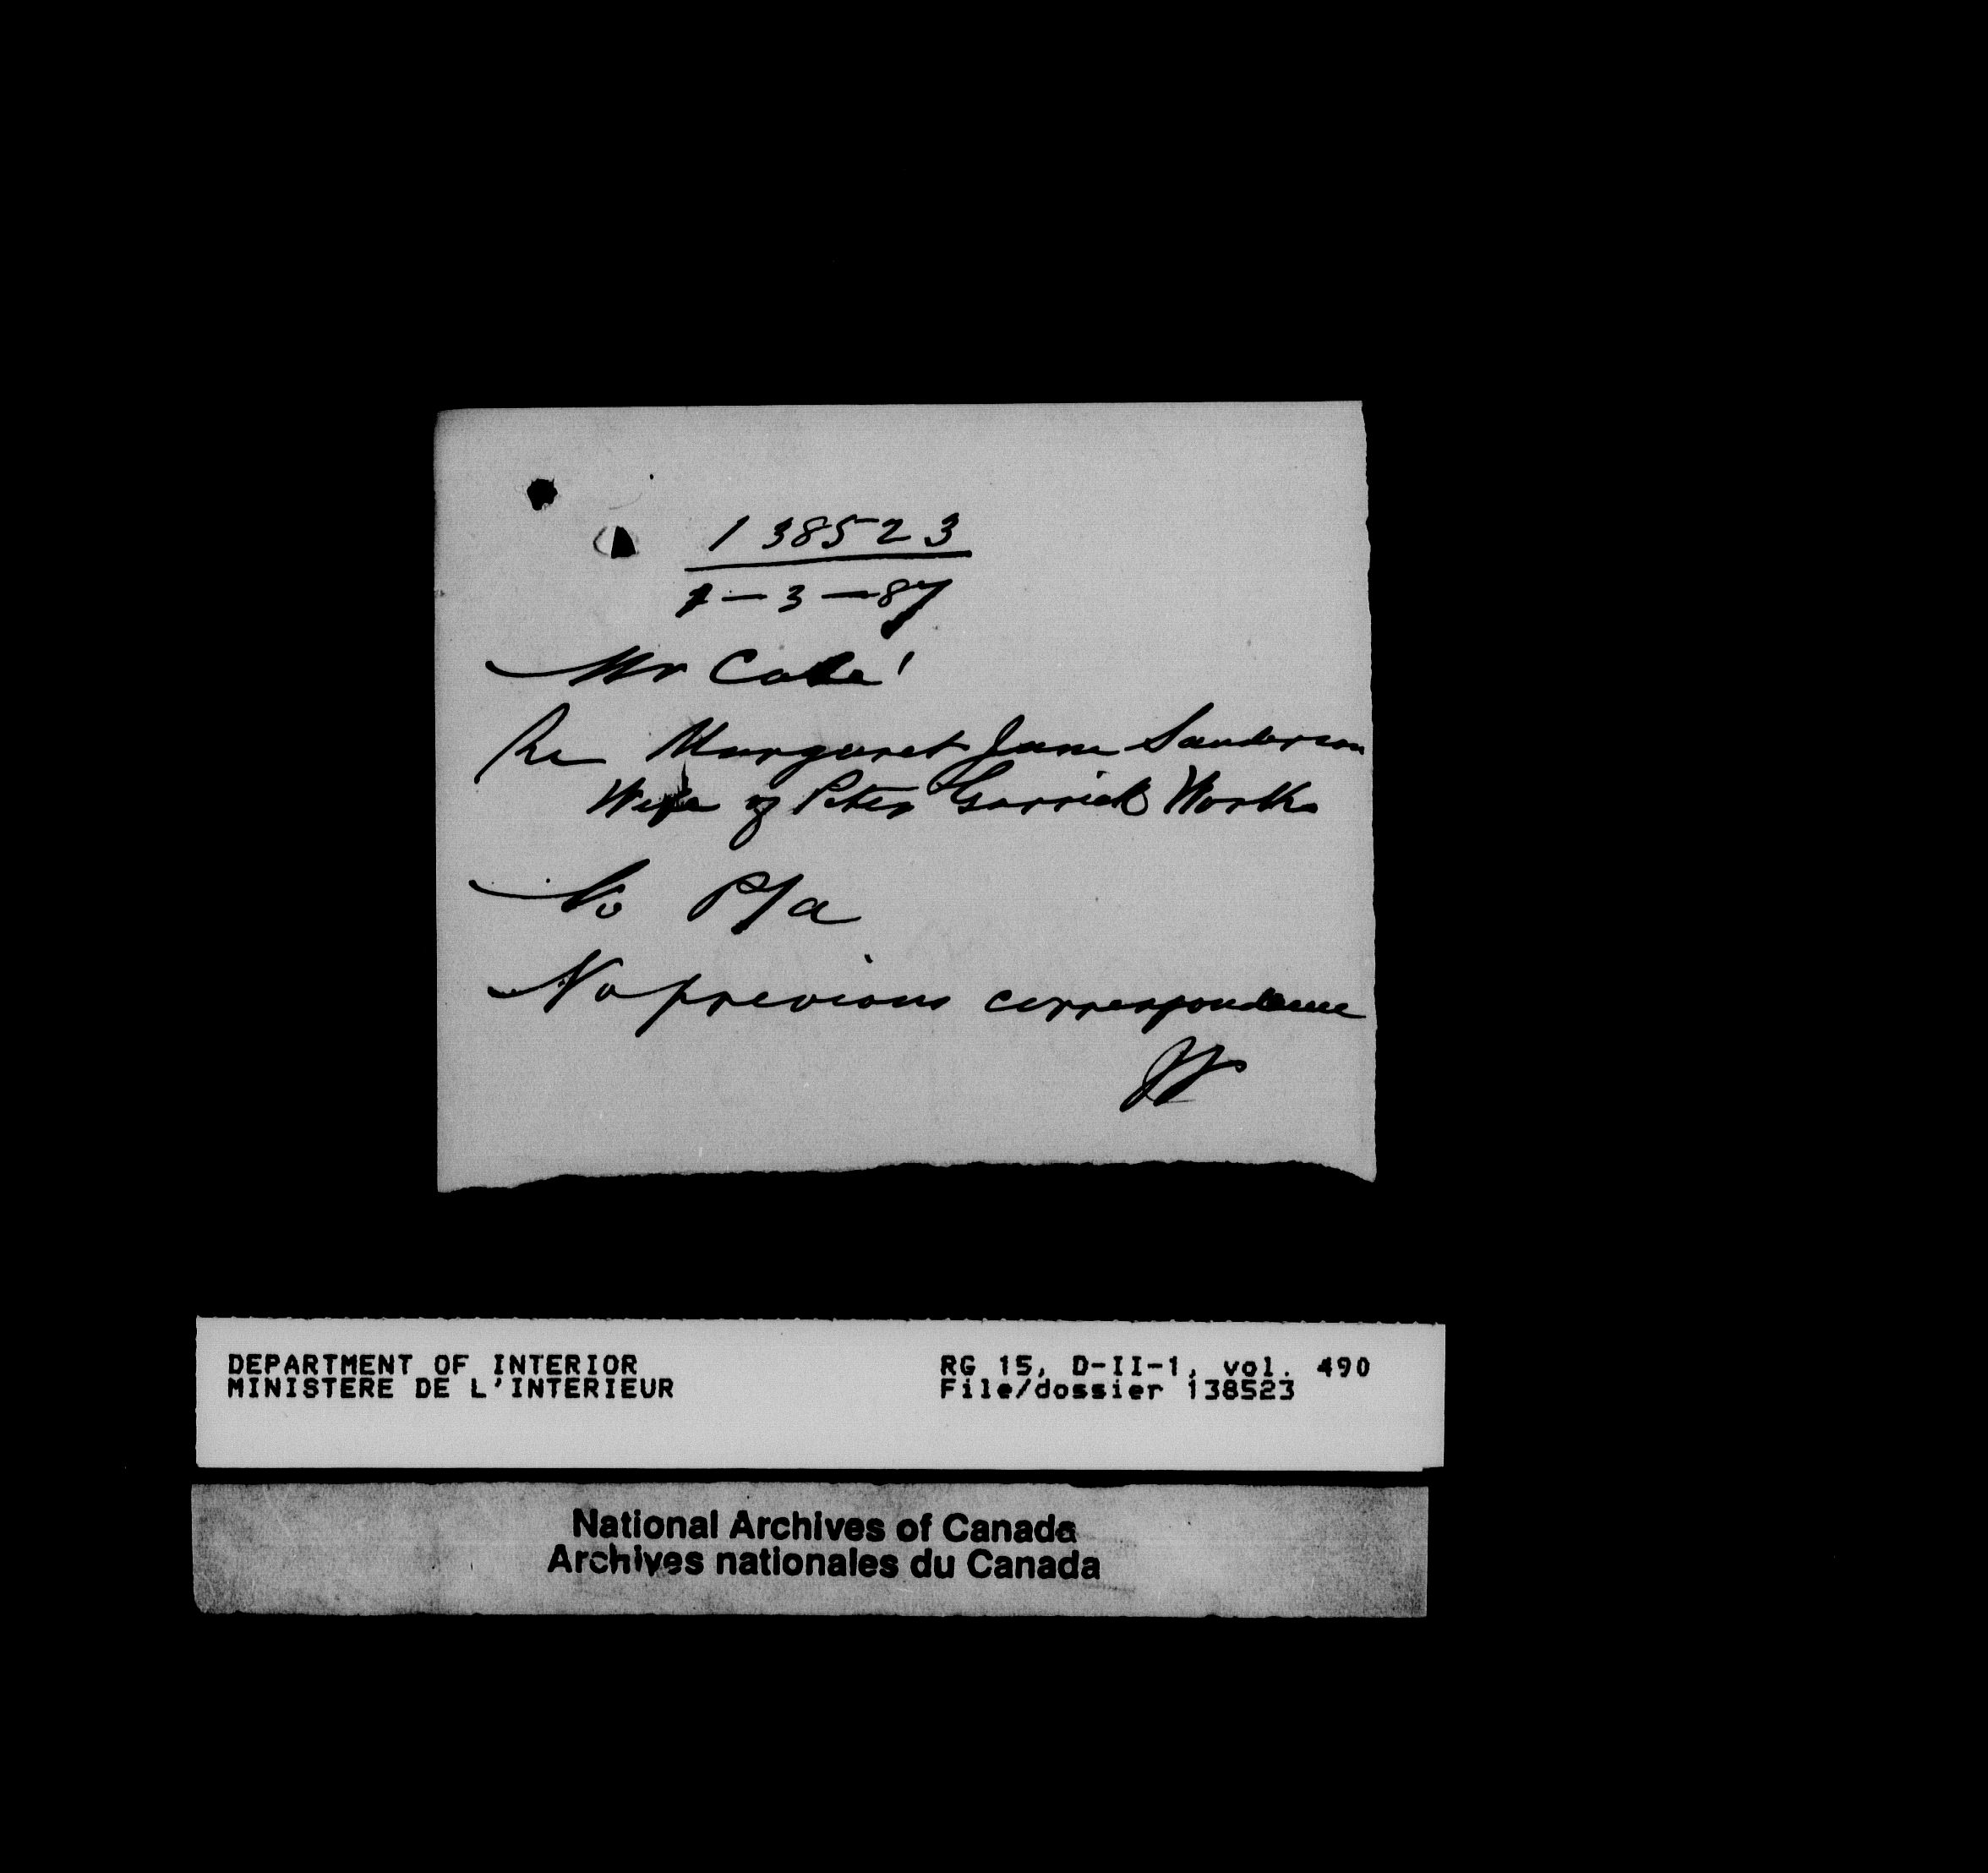 138523
7-3-87
Mr Coté
Re Margaret Jane Sanderson
Wife of Peter Garrick Work
No P/a
No previous correspondence
DEPARTMENT OF INTERIOR
MINISTERE DE L'INTERIEUR
RG 15, D-II-1, vol. 490
File/dossier 138523
National Archives of Canada
Archives nationales du Canada